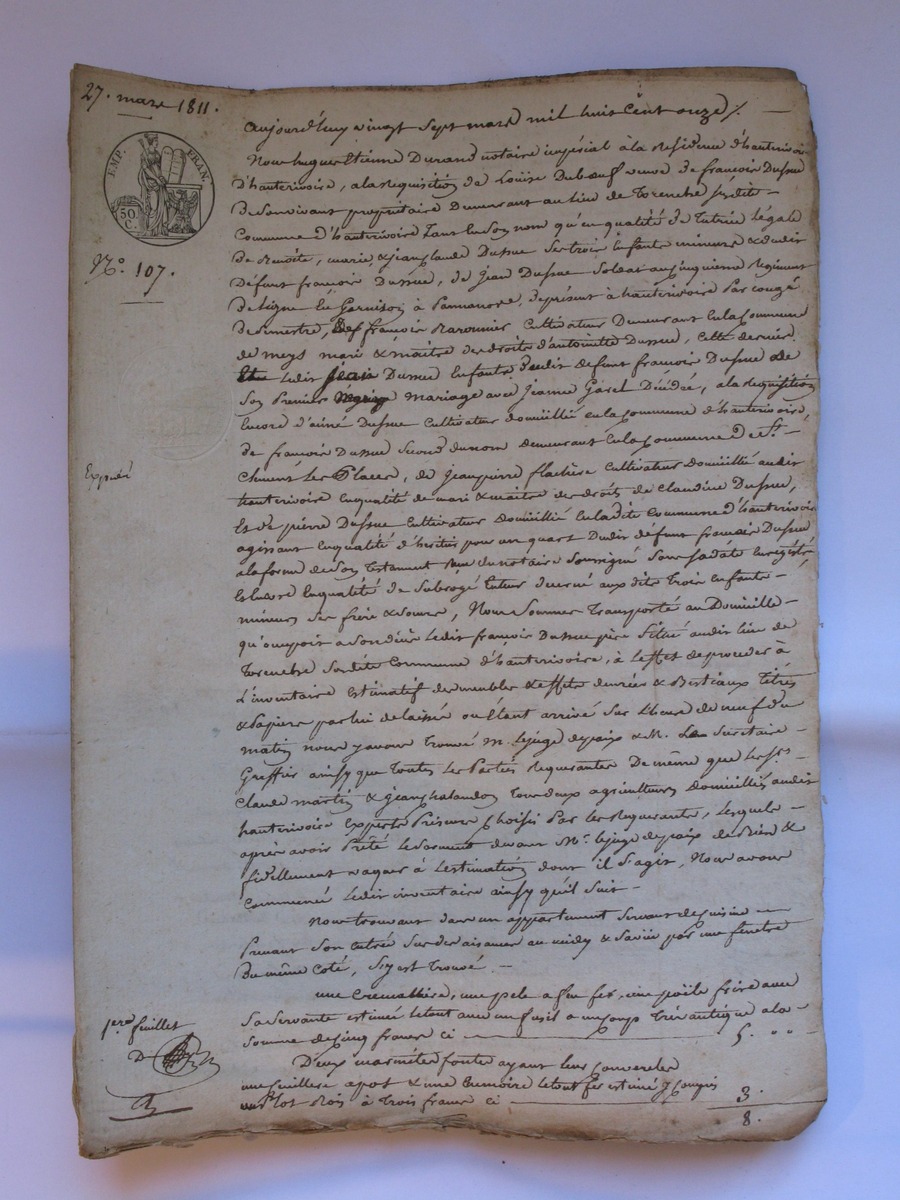 27. mars 1811.
EMP. FRAN.
50 C.
N.º 107.
Expedié
aujourd'huy vingt Sept mars mil huit Cent onze /.
Nous hugues Etienne Durand notaire impérial à la Residence d'hauterivoire
d'hauterivoire, ala Requisition de Louise Duboeuf veuve de françois Dussue
De Sonvivant propriétaire Demeurant au lieu de Torenche susdite
Commune d'hauterivoire Tant En Son nom qu'en qualité de Tutrice Légale
De Benoite, marie, & jean Claude Dussue Ses trois Enfants mineurs & dudit
Défunt françois Dussue, de Jean Dussue Soldat au Cinquieme Regiment
De Ligne En Garnison à, deprésent à hauterivoire Par Congé
De Simestre, françois Cultivateur Demeurant En la Commune
de meys mari & maitre des droits d'antoinette Dussue, Cette derniere
Ledit Jean Dussue Enfants dudit défunt françois Dussue de
Son Premier mariage avec Jeanne Décédée, ala Requisition
Encore d'aimé Dussue Cultivateur domicilié en la Commune d'hauterivoire,
de françois Dussue Second du nom demeurant En la Commune de St.
Clément Les Places, de Jean pierre flachère Cultivateur Domicilié audit
hauterivoire En qualité de mari & maitre des droits de Claudine Dussue,
Et de pierre Dussue Cultivateur Domicilié En la dite Commune d'hauterivoire
agissant En qualité d'héritier pour un quart Dudit défunt françois Dussue
ala forme de Son Testament Reçu du notaire Soussigné Sous Sa date Enregistré,
Et Encore En qualité de Subrogé Tuteur décerné aux dits Trois Enfants
mineurs Ses frère & Soeurs, Nous Sommes Transporté au Domicille
qu'occupoit a Son décès Ledit françois Dussue père Situé audit lieu de
Torenche Susdite Commune d'hauterivoire, à L'effet de proceder à
L'inventaire Estimatif des meubles & effets denrées & Bestiaux Titres
& Papiers par lui delaissés où Etant arrivé Sur L'heure de neuf du
matin nous y avons Trouvé M. Lejuge depaix & M. Le Secretaire
Greffier ainsy que Toutes Les Parties Requerantes De même que Les Srs.
Claude martin & jean Chalandon Tous deux agriculteurs Domiciliés audit
hauterivoire Experts Priseurs Choisis Par Les Requerants, Lesquels
après avoir Prêté Le Serment devant Mr. Lejuge depaix de Bien &
fidellement vaquer à L'estimation dont il S'agit, Nous avons
Commencé Ledit inventaire ainsy qu'il Suit
Nous trouvant dans un appartement Servant de Cuisine
Prenant Son entrée Sur des aisances au midy & Saisie par une fenêtre
Du même Coté, S'y est Trouvé.
une Cremallière, une pele a feu fer, une poële frire avec
Sa Servante estimée Letout avec un fusil a un coup Très antique ala
Somme de Cinq francs ci 5. " "
Deux marmites fonte ayant Leurs Couvercles
une Cuillere a pot & une Letout fer estimé y compris
un Plot Bois à Trois francs ci 3.
8.
1er. feuillet
D